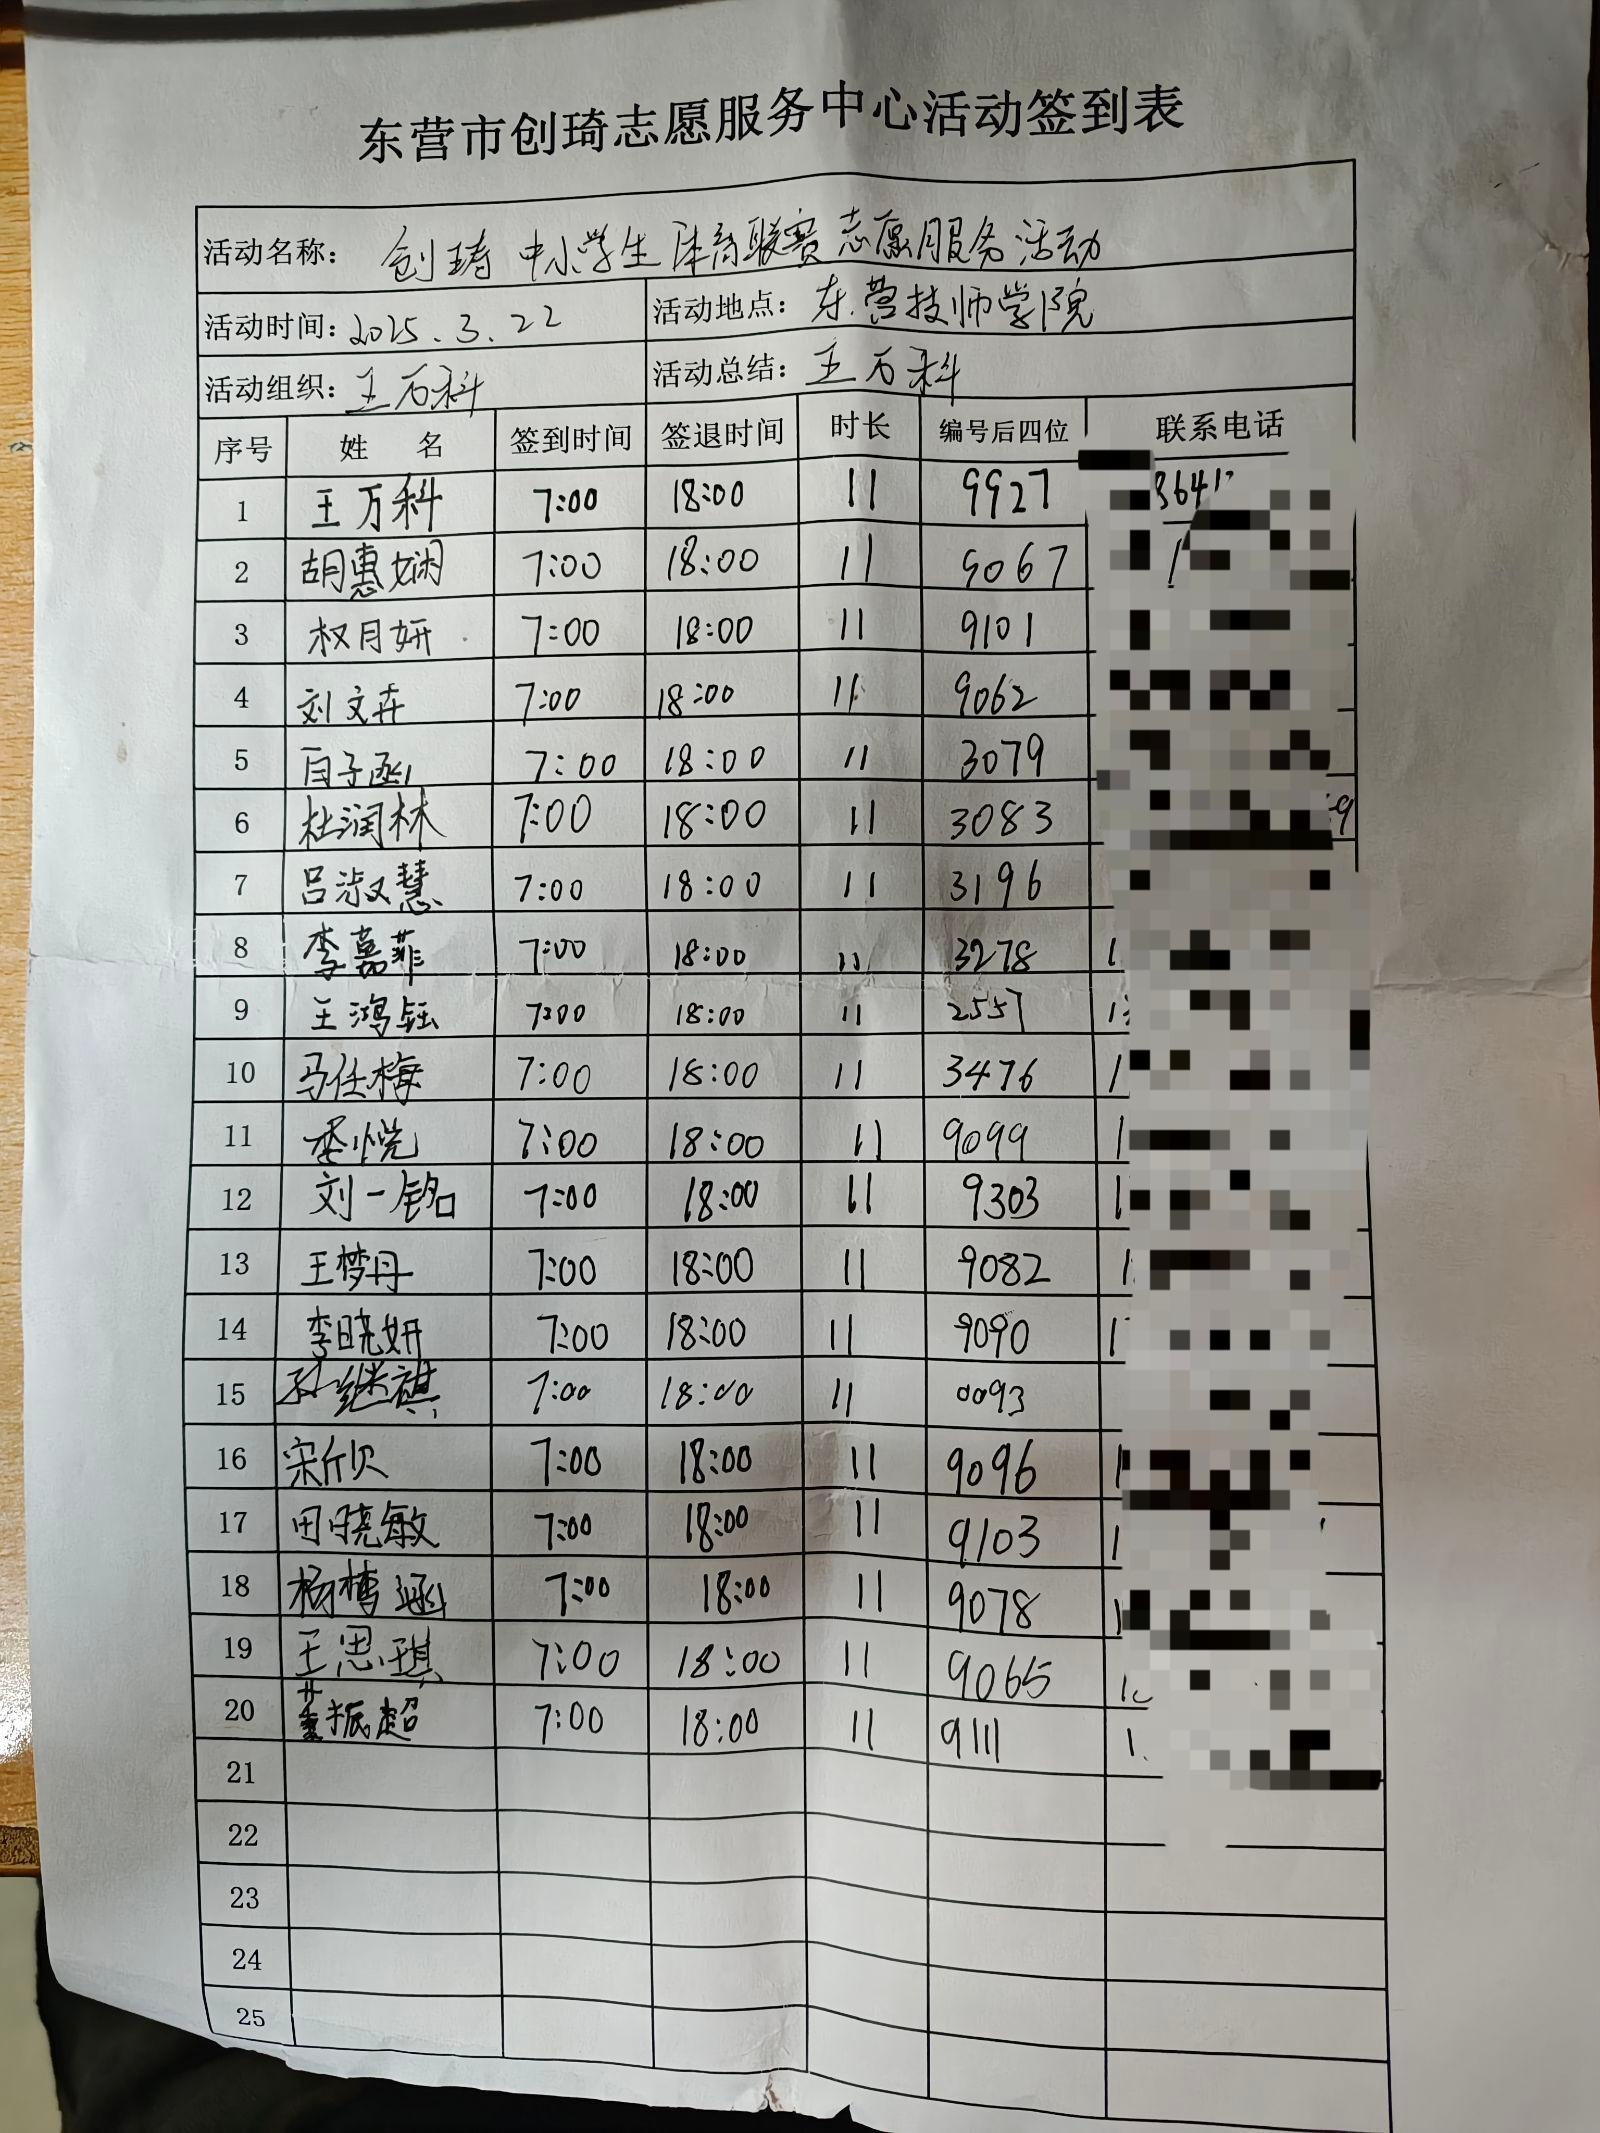 东营市创琦志愿服务中心活动签到表
活动名称： 创琦中小学生体育联赛志愿服务活动
活动时间：2025.3.22 活动地点：东营技师学院
活动组织：王万科 活动总结：王万科
序号 姓 名 签到时间 签退时间 时长 编号后四位 联系电话
1 王万科 7:00 18:00 11 9927
2 胡惠娴 7:00 18:00 11 9067
3 权月妍 7:00 18:00 11 9101
4 刘文卉 7:00 18:00 11 9062
5 7:00 18:00 11 3079
6 杜润林 7:00 18:00 11 3083
7 吕淑慧 7:00 18:00 11 3196
8 李嘉菲 7:00 18:00 11 3278
9 王鸿钰 7:00 18:00 11 2557
10 马任梅 7:00 18:00 11 3476
11 李悦 7:00 18:00 11 9099
12 刘一铭 7:00 18:00 11 9303
13 王梦丹 7:00 18:00 11 9082
14 李晓妍 7:00 18:00 11 9090
15 孙继祺 7:00 18:00 11 0093
16 宋欣 7:00 18:00 11 9096
17 田晓敏 7:00 18:00 11 9103
18 7:00 18:00 11 9078
19 王思琪 7:00 18:00 11 9065
20 董振超 7:00 18:00 11 9111
21
22
23
24
25